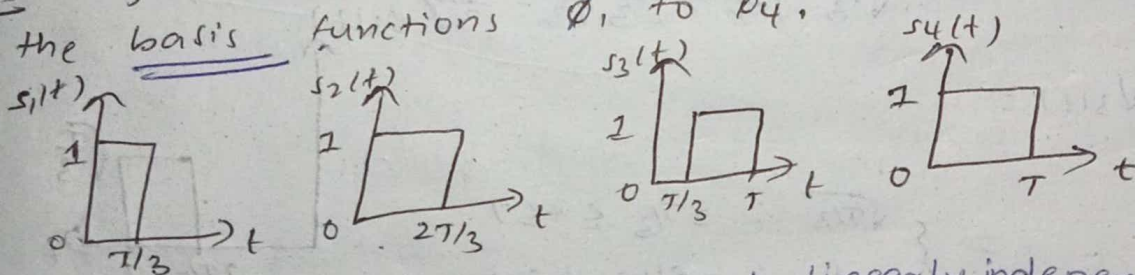 the basis functions ø, to ø4.
s1(t)
1
0
T/3
t
s2(t)
1
0
2T/3
t
s3(t)
1
0
T/3
T
t
s4(t)
1
0
T
t